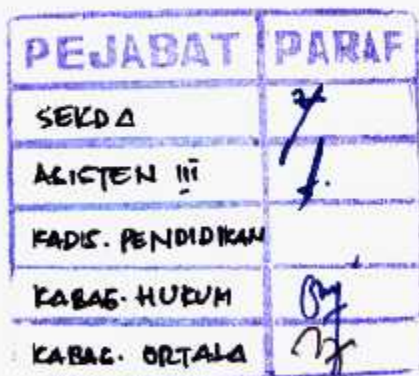 PEJABAT PARAF
SEKDA
ASISTEN III
KADIS. PENDIDIKAN
KABAG. HUKUM
KABAG. ORTALA